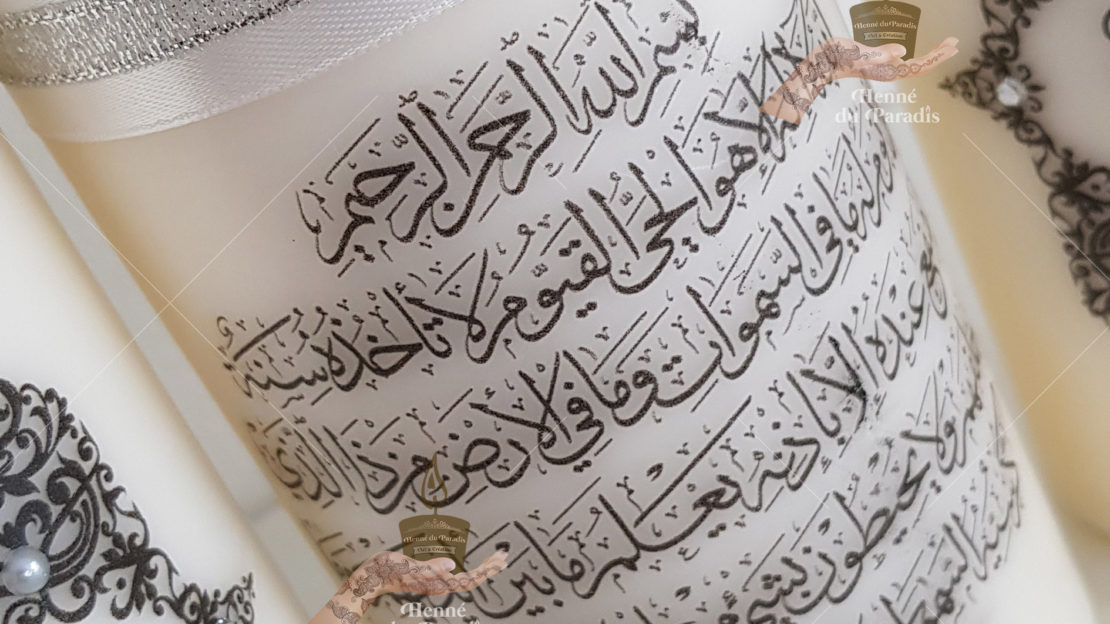 بسم الله الرحمن الرحيم
لا إله إلا هو الحي القيوم لا تأخذه سنة
له ما في السموات وما في الأرض من ذا الذي
عنده إلا بإذنه يعلم ما بين
ولا يحيطون بشيء
السم
Henné du Paradis
Art & Création
Henné
du Paradis
Henné du Paradis
Art & Création
Henné